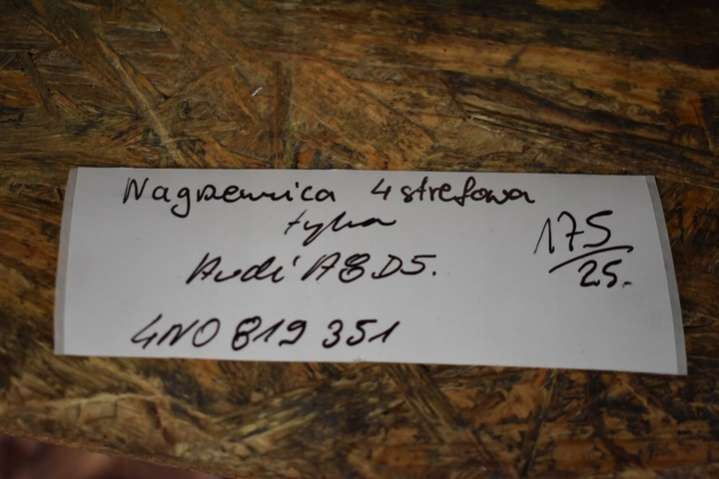 Nagrzewnica 4 strefowa
tylna
Audi A8 D5.
4N0 819 351
175/25.